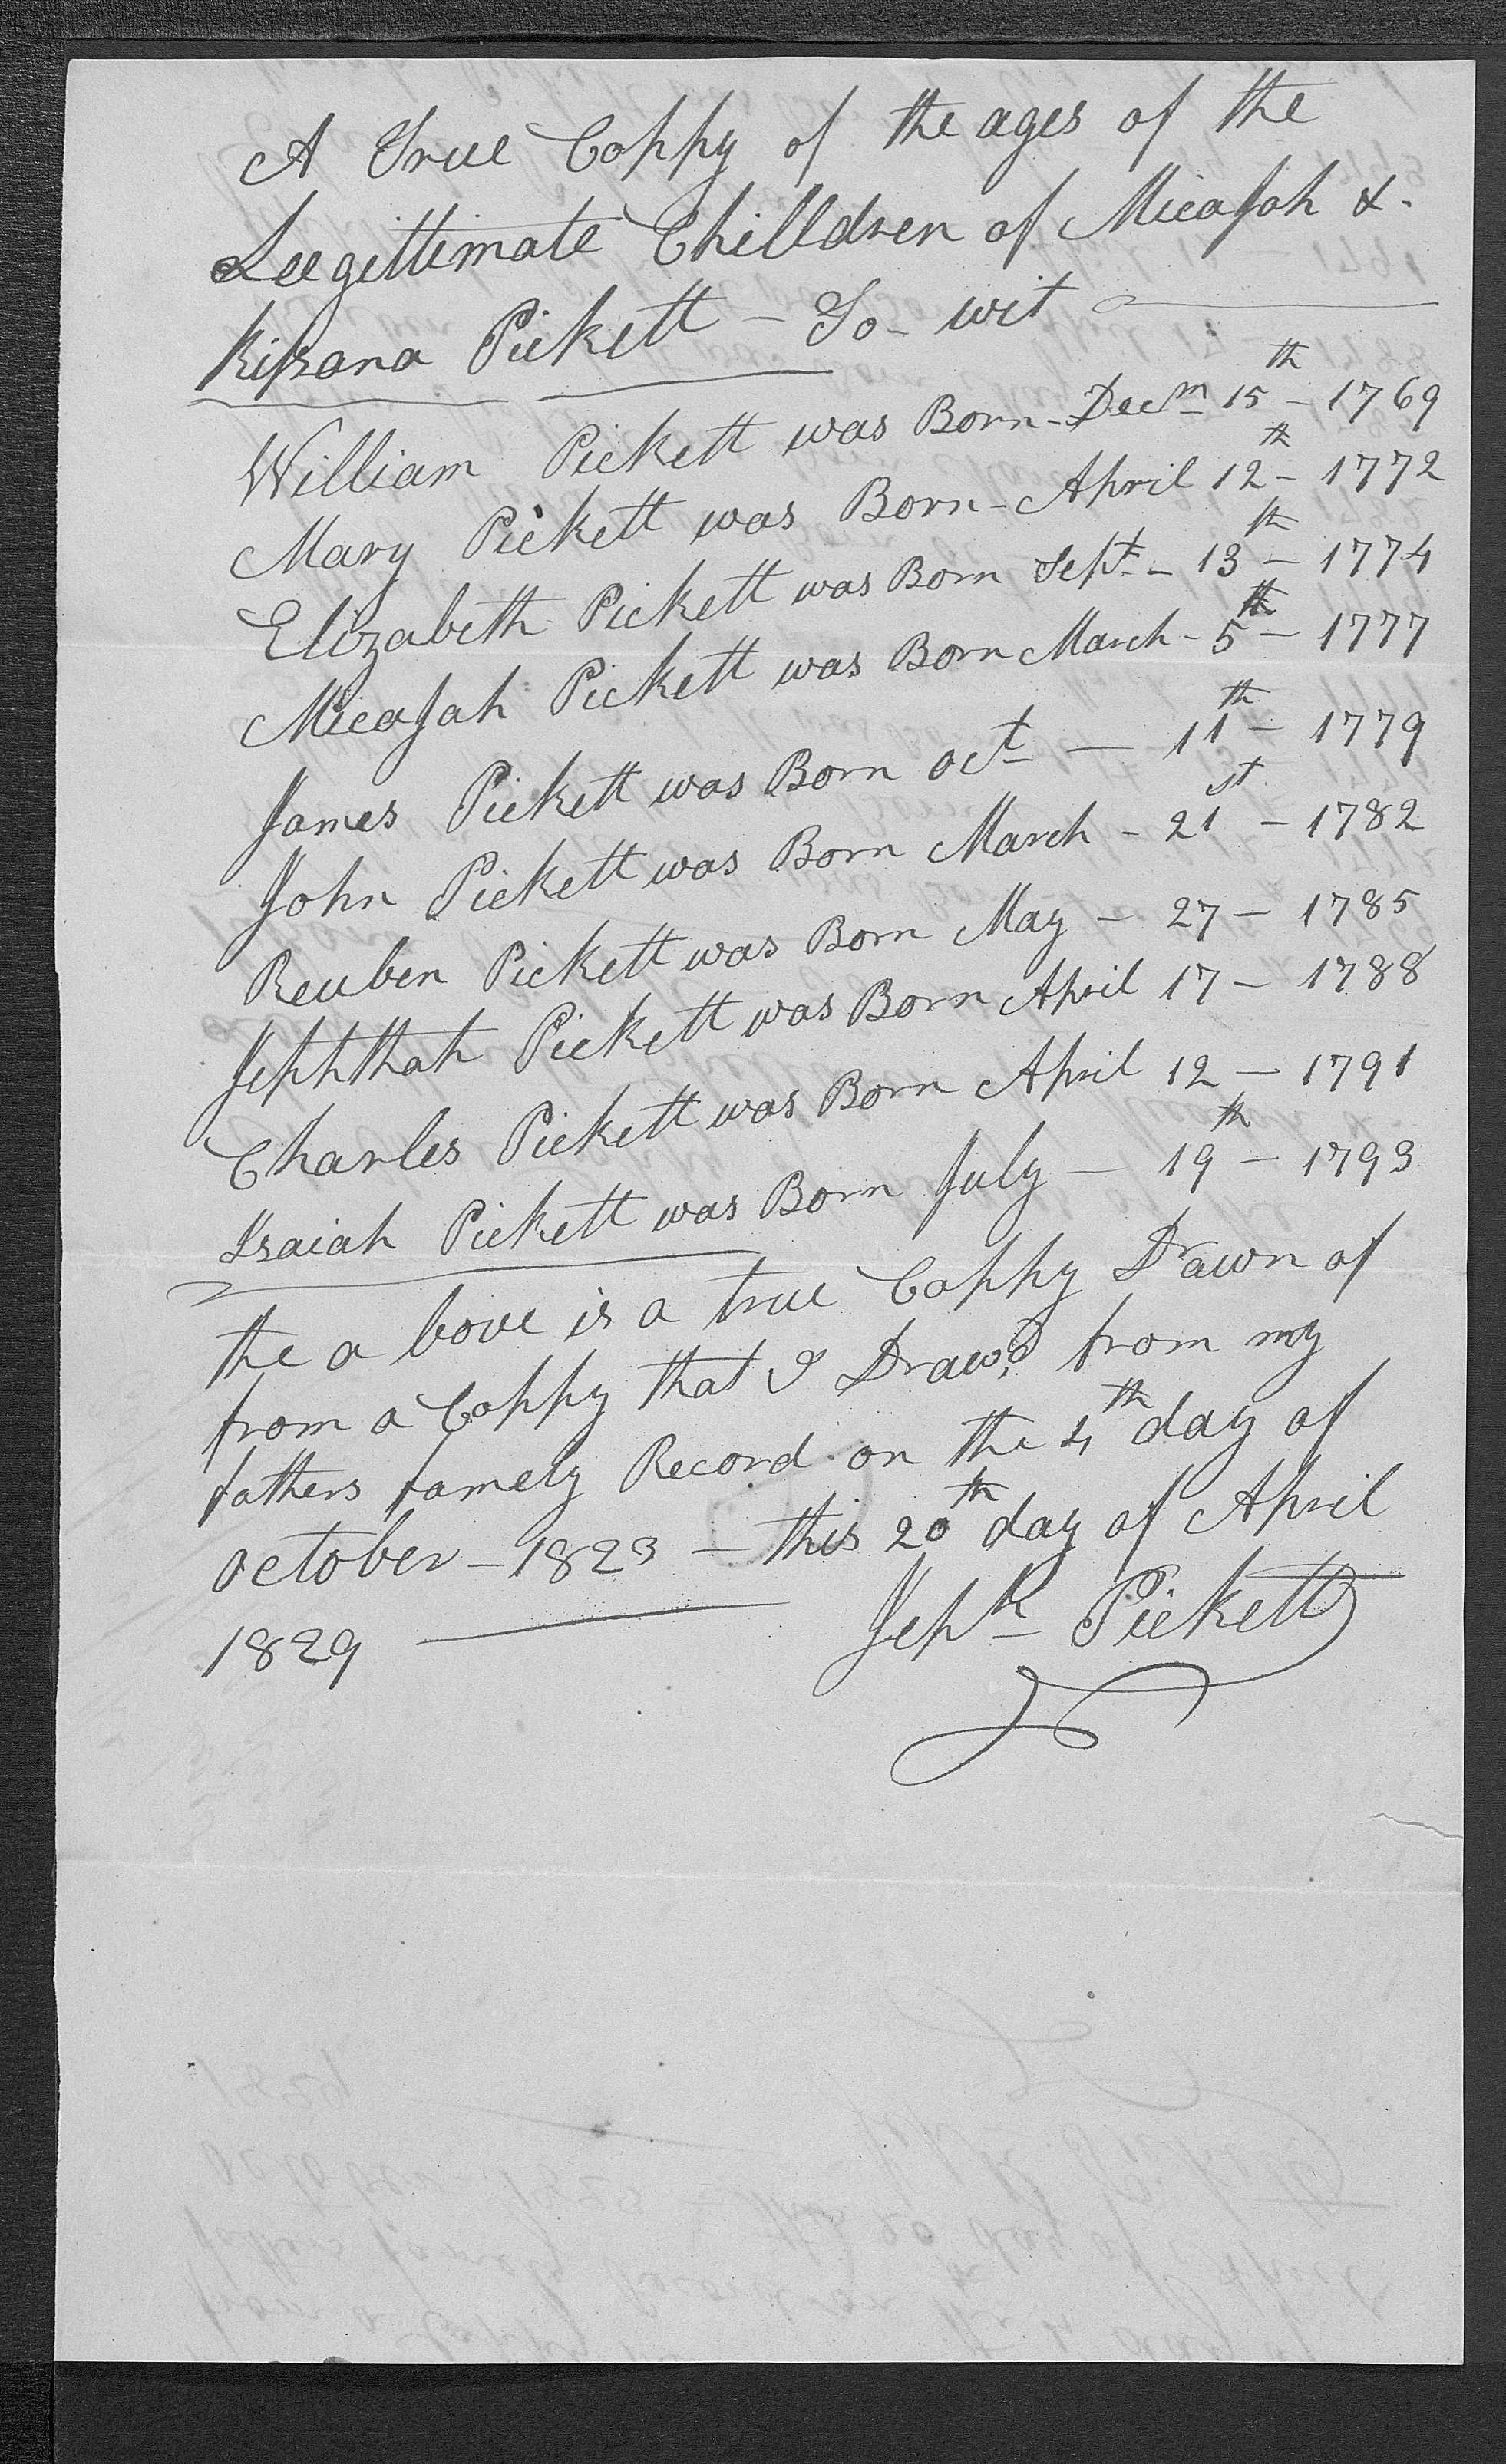 A True Coppy of the ages of the
Leegittimate Chilldren of Micajah &.
Kissana Pickett – To- wit
William Pickett was Born - Decm 15th – 1769
Mary Pickett was Born - April 12th – 1772
Elizabeth Pickett was Born Sept – 13th – 1774
Micajah Pickett was Born March - 5th – 1777
James Pickett was Born oct — 11th – 1779
John Pickett was Born March - 21st – 1782
Reuben Pickett was Born May – 27 – 1785
Jephthah Pickett was Born April 17 – 1788
Charles Pickett was Born April 12 – 1791
Isaiah Pickett was Born July — 19th – 1793
the a bove is a true Coppy Drawn of
from a Coppy that I Draw,d from my
fathers famely Record on the 4th day of
october – 1823 — this 20th day of April
1829 — Jeph Pickett